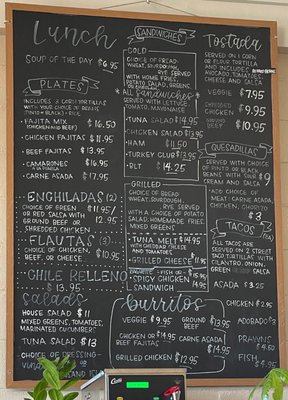 Lunch
SOUP OF THE DAY $6.95
PLATES
INCLUDES 2 CRISPY TORTILLAS
WITH YOUR CHOICE OF BEANS
(PINTO or BLACK) + RICE
- FAJITA MIX $16.50
(CHICKEN AND BEEF)
- CHICKEN FAJITAS $11.95
- BEEF FAJITAS $13.95
- CAMARONES $16.95
A LA PARRILLA
- CARNE ASADA $17.95
ENCHILADAS (2)
CHOICE OF GREEN $11.95/
OR RED SALSA WITH 12.95
GROUND BEEF OR
SHREDDED CHICKEN
FLAUTAS (3)
CHOICE OF CHICKEN,
BEEF, OR CHEESE $10.95
CHILE RELLENO
$13.95
salads
HOUSE SALAD $11
MIXED GREENS, TOMATOES,
MARINATED CUCUMBERS
TUNA SALAD $13
CHOICE OF DRESSING
SANDWICHES
COLD
CHOICE OF BREAD:
WHEAT, SOURDOUGH,
RYE SERVED
WITH HOME FRIES,
POTATO SALAD, GREENS,
OR
* ALL SANDWICHES *
SERVED WITH LETTUCE,
TOMATO, MARINADE
- TUNA SALAD $14.95
- CHICKEN SALAD $13.95
- HAM $11.50
- TURKEY CLUB $13.95
- BLT $14.25
GRILLED
CHOICE OF BREAD:
WHEAT, SOURDOUGH,
RYE SERVED
WITH A CHOICE OF POTATO
SALAD, HOMEMADE FRIES,
MIXED GREENS
- TUNA MELT $14.95
WITH CHEDDAR CHEESE
AND TOMATOES
- GRILLED CHEESE $11.95
- FISH OR $15.95
SPICY CHICKEN 14.95
SANDWICH
burritos
VEGGIE $9.95
GROUND BEEF $13.95
CHICKEN OR $14.95
BEEF FAJITAS
CARNE ASADA $14.95
GRILLED CHICKEN $12.95
Tostada
SERVED ON 1 CORN
OR FLOUR TORTILLA
AND INCLUDES
AVOCADO, TOMATOES,
CHEESE AND SALSA
VEGGIE $7.95
SHREDDED CHICKEN $9.95
GROUND BEEF $10.95
QUESADILLAS
SERVED WITH CHOICE
OF PINTO OR BLACK
BEANS WITH SOUR $9
CREAM AND SALSA
ADD CHOICE OF
MEAT: CARNE ASADA,
CHICKEN, CHORIZO
$3
TACOS
ALL TACOS ARE
SERVED ON 2 STREET
TACO TORTILLAS WITH
CILANTRO, ONION,
GREEN SALSA
ASADA $3.25
CHICKEN $2.95
ADOBADA $3
PRAWNS $4.50
FISH $4.95